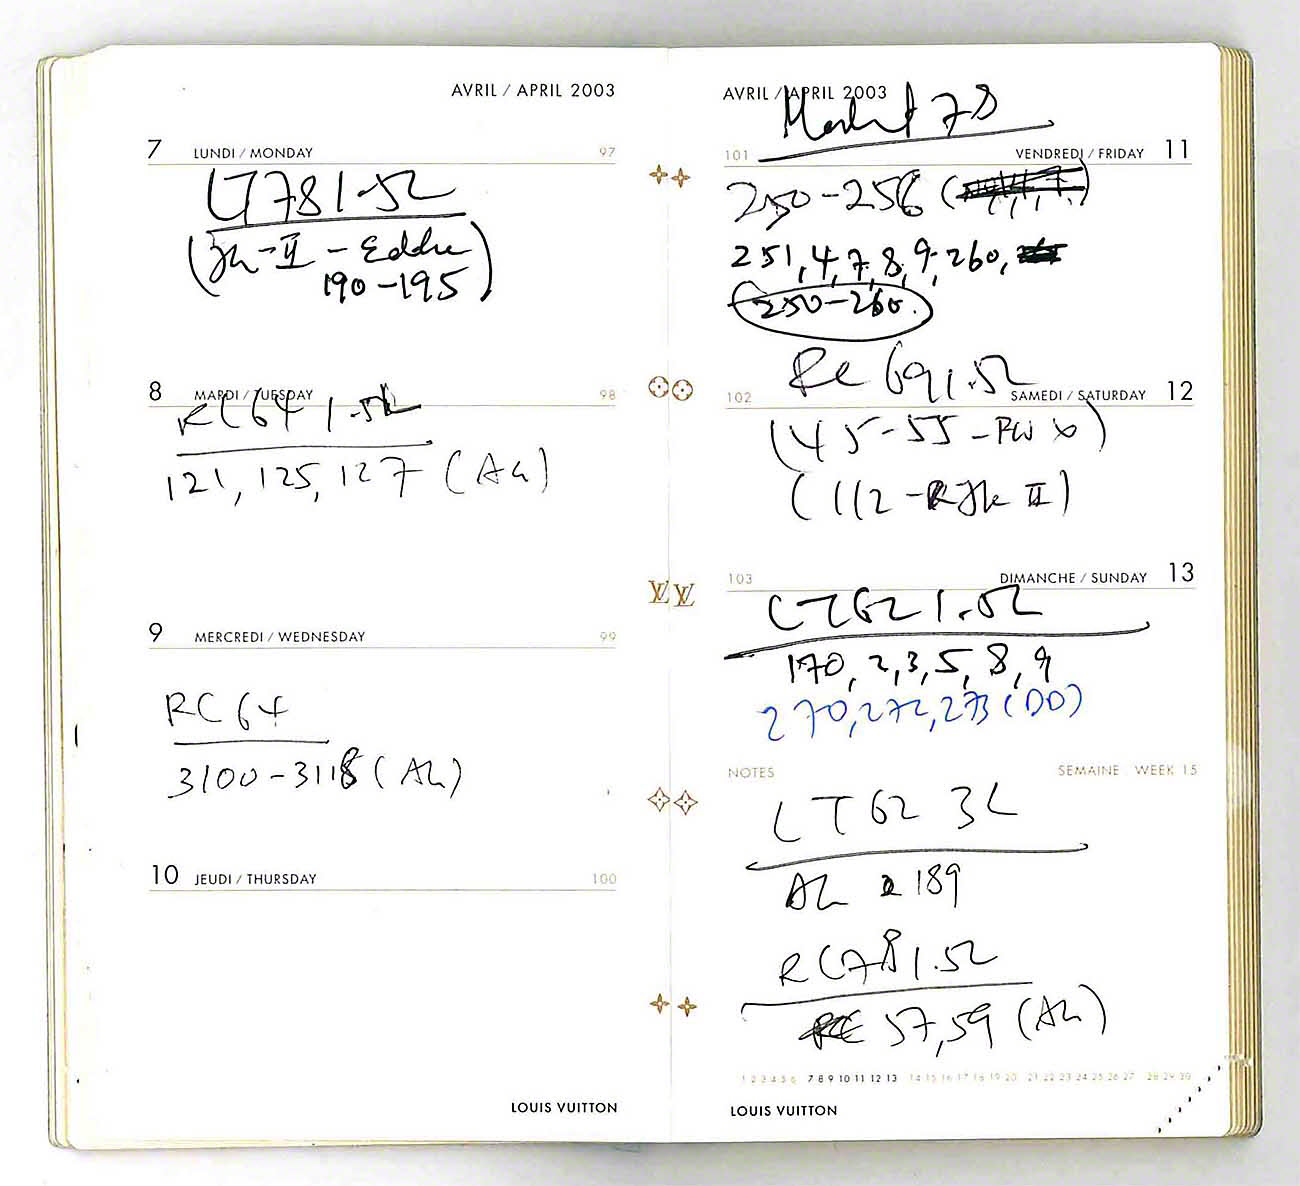 AVRIL / APRIL 2003
7 LUNDI / MONDAY 97
LT781.5L
(Jh-II - Eddie
190-195)
8 MARDI / TUESDAY 98
RC64 1.5L
121, 125, 127 (Ah)
9 MERCREDI / WEDNESDAY 99
RC64
3100-3118 (Ah)
10 JEUDI / THURSDAY 100
LOUIS VUITTON
AVRIL / APRIL 2003
78
101 VENDREDI / FRIDAY 11
250-256
251, 4, 7, 8, 9, 260,
250-260.
RC 691.5L
102 SAMEDI / SATURDAY 12
(45-55-RW
(112- Jh II)
103 DIMANCHE / SUNDAY 13
LT62 1.5L
170, 2, 3, 5, 8, 9
270, 272, 273 (DD)
NOTES SEMAINE / WEEK 15
LT62 3L
Ah 189
RC78 1.5L
57, 59 (Ah)
1 2 3 4 5 6 7 8 9 10 11 12 13 14 15 16 17 18 19 20 21 22 23 24 25 26 27 28 29 30
LOUIS VUITTON